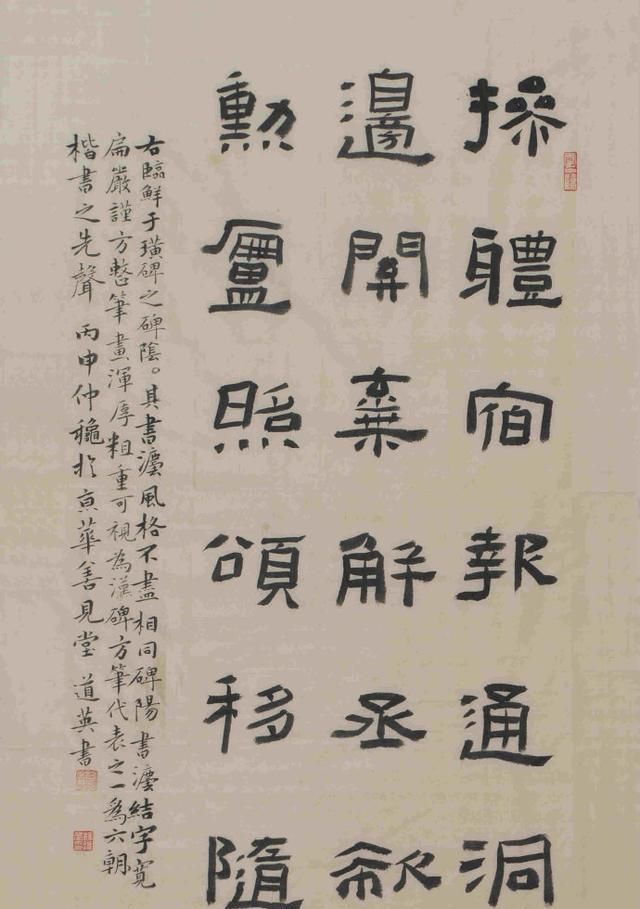 操軆宿報通洞
邊開棄解丞
勳照頌移隨
右臨鮮于璜碑之碑陰。其書灋風格不盡相同碑陽書灋結字寬
扁嚴謹方整筆畫渾厚粗重可視為漢碑方筆代表之一為六朝
楷書之先聲 丙申仲龝於京華善見堂 道英書